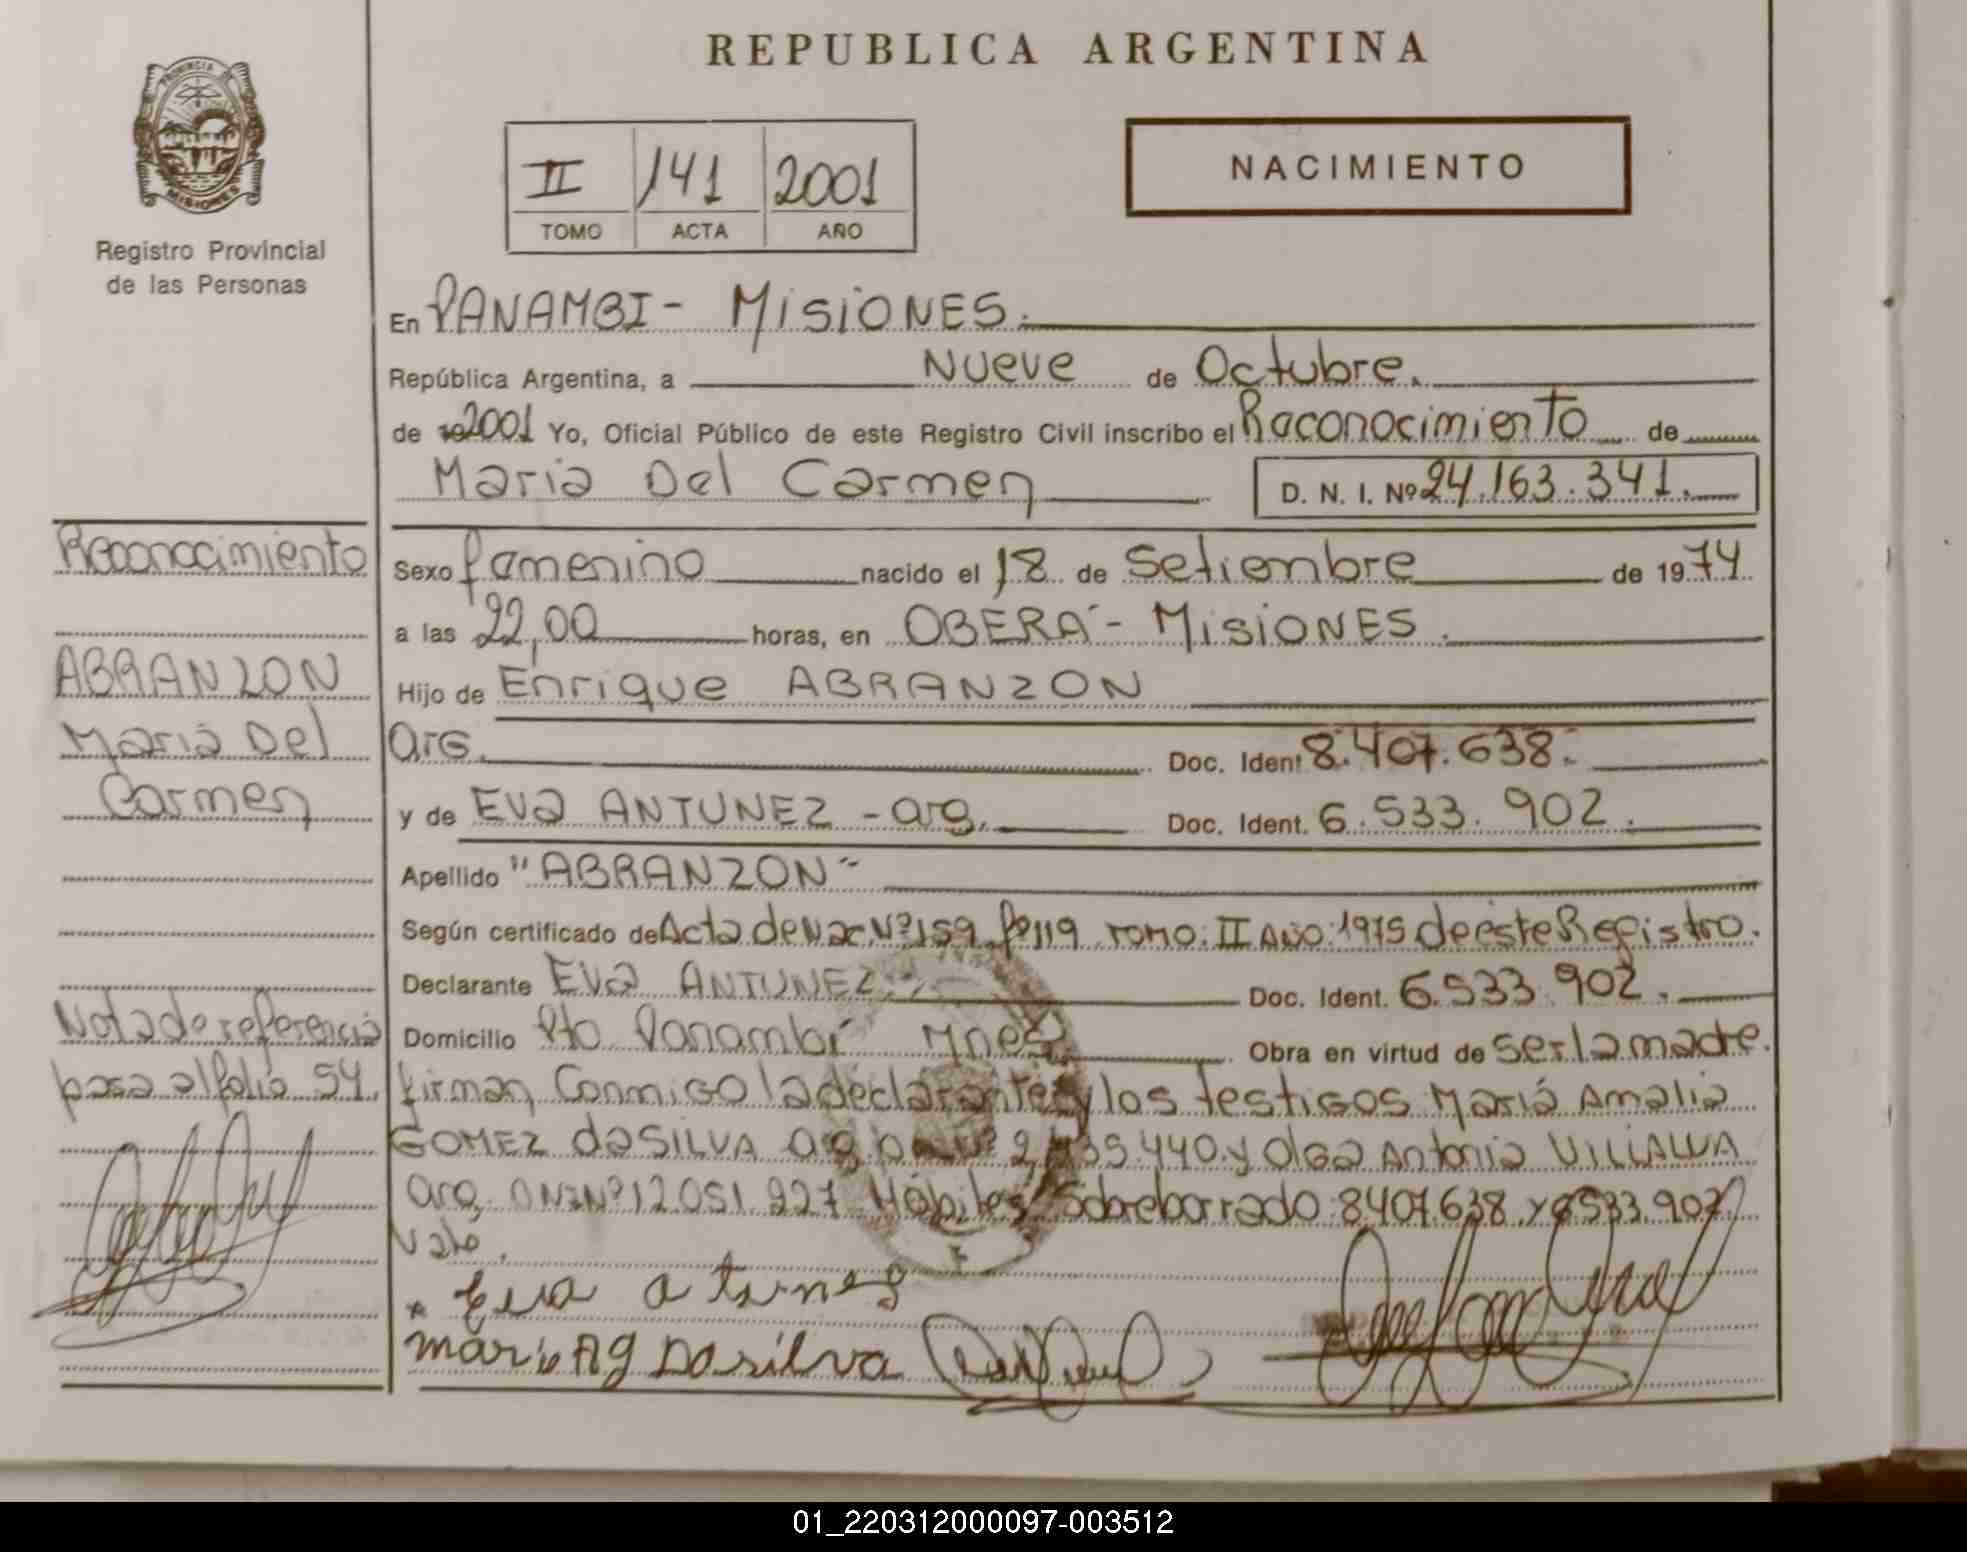 REPUBLICA ARGENTINA
PROVINCIA DE
MISIONES
Registro Provincial
de las Personas
II 141 2001
TOMO ACTA AÑO
NACIMIENTO
En PANAMBI - MISIONES.
República Argentina, a Nueve de Octubre.
de 2001 Yo, Oficial Público de este Registro Civil inscribo el Reconocimiento de
Maria Del Carmen D. N. I. Nº 24.163.341.
Sexo femenino nacido el 18 de Setiembre de 1974
a las 22,00 horas, en OBERÁ - MISIONES.
Hijo de Enrique ABRANZON
arg. Doc. Ident 8.407.638.
y de Eva ANTUNEZ - arg. Doc. Ident. 6.533.902.
Apellido "ABRANZON"
Según certificado de Acta de Nac. Nº 159 fº 119 TOMO: II AÑO: 1975 de este Registro.
Declarante Eva ANTUNEZ. Doc. Ident. 6.533.902.
Domicilio Pto Panambí Mnes. Obra en virtud de ser la madre.
firman Conmigo la declarante y los testigos María Amalia
GOMEZ da SILVA arg. 440 y Olga Antonia VILLALVA
arg. DNI Nº 12.051.227 Hábiles Sobreborrado: 8407.638 y 6533.902
Vale.
Eva atunez
maria Ag Dasilva
Reconocimiento
ABRANZON
María Del
Carmen
Nota de referencia
pasa al folio 54.
01_220312000097-003512